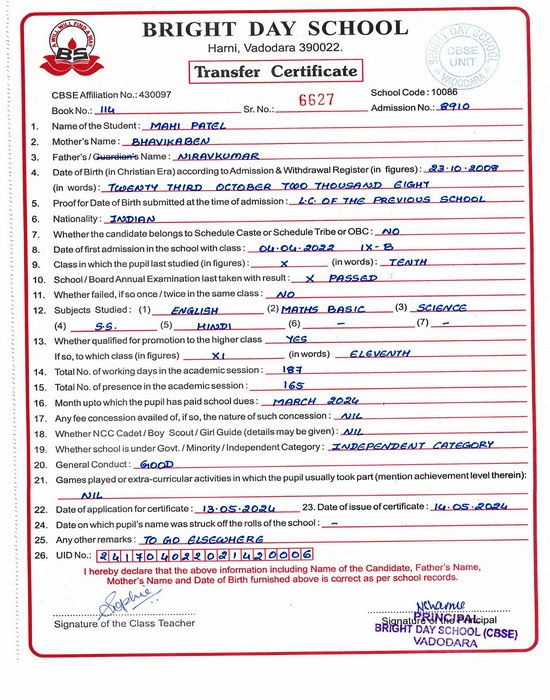 A WILL WILL FIND A WAY
BS
BRIGHT DAY SCHOOL
Harni, Vadodara 390022.
Transfer Certificate
BRIGHT DAY SCHOOL
CBSE
UNIT
VADODARA
CBSE Affiliation No.: 430097 School Code : 10086
Book No.: 114 Sr. No.: 6627 Admission No.: 8910
1. Name of the Student : MAHI PATEL
2. Mother's Name : BHAVIKABEN
3. Father's / Guardian's Name : NIRAVKUMAR
4. Date of Birth (in Christian Era) according to Admission & Withdrawal Register (in figures) : 23.10.2008
(in words) : TWENTY THIRD OCTOBER TWO THOUSAND EIGHT
5. Proof for Date of Birth submitted at the time of admission : L.C. OF THE PREVIOUS SCHOOL
6. Nationality : INDIAN
7. Whether the candidate belongs to Schedule Caste or Schedule Tribe or OBC : NO
8. Date of first admission in the school with class : 04.04.2022 IX-B
9. Class in which the pupil last studied (in figures) : X (in words) : TENTH
10. School / Board Annual Examination last taken with result : X PASSED
11. Whether failed, if so once / twice in the same class : NO
12. Subjects Studied : (1) ENGLISH (2) MATHS BASIC (3) SCIENCE
(4) S.S. (5) HINDI (6) – (7) –
13. Whether qualified for promotion to the higher class YES
If so, to which class (in figures) XI (in words) ELEVENTH
14. Total No. of working days in the academic session : 187
15. Total No. of presence in the academic session : 165
16. Month upto which the pupil has paid school dues : MARCH 2024
17. Any fee concession availed of, if so, the nature of such concession : NIL
18. Whether NCC Cadet / Boy Scout / Girl Guide (details may be given) : NIL
19. Whether school is under Govt. / Minority / Independent Category : INDEPENDENT CATEGORY
20. General Conduct : GOOD
21. Games played or extra-curricular activities in which the pupil usually took part (mention achievement level therein):
NIL
22. Date of application for certificate : 13.05.2024 23. Date of issue of certificate : 14.05.2024
24. Date on which pupil's name was struck off the rolls of the school : –
25. Any other remarks : TO GO ELSEWHERE
26. UID No.: 241704022021420006
I hereby declare that the above information including Name of the Candidate, Father's Name,
Mother's Name and Date of Birth furnished above is correct as per school records.
Sophie
Signature of the Class Teacher Signature of the Principal
PRINCIPAL
BRIGHT DAY SCHOOL (CBSE)
VADODARA